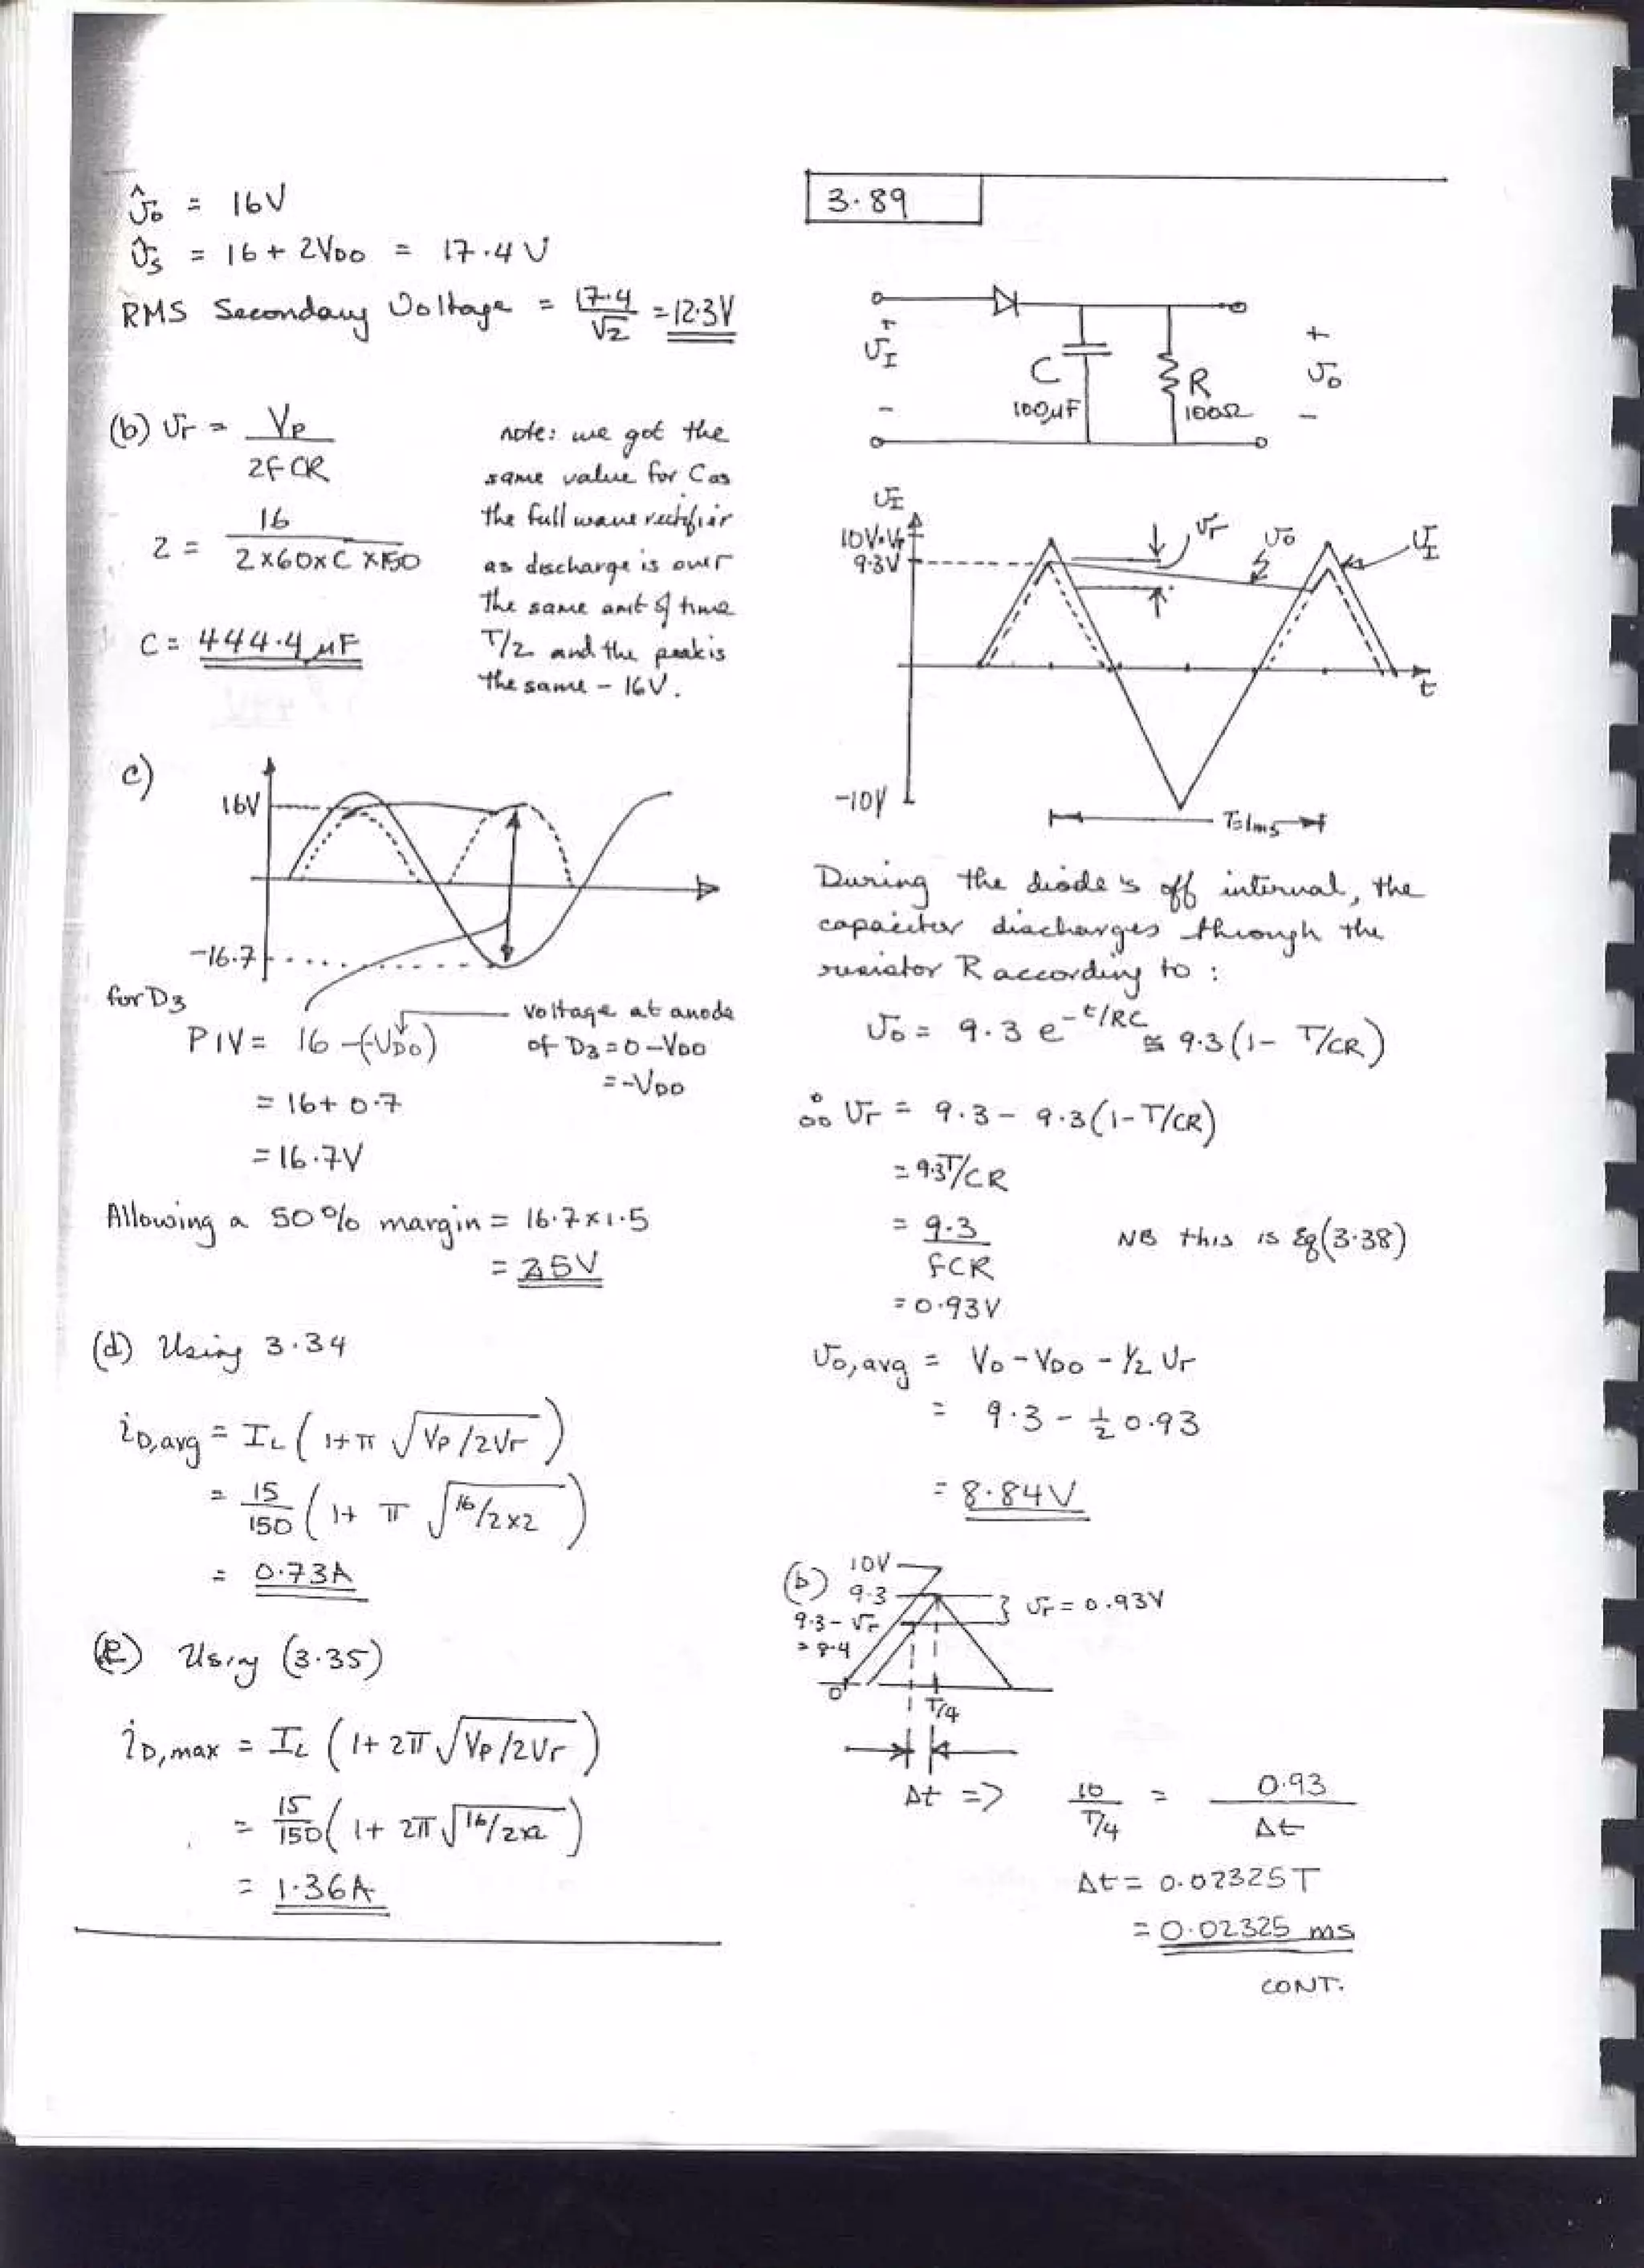 v̂o = 16V
v̂s = 16 + 2VDO = 17.4V
RMS Secondary Voltage = 17.4/√2 = 12.3V
(b) vr = VP/2fCR
2 = 16/(2×60×C×150)
C = 444.4 µF
note: we got the
same value for C as
the full wave rectifier
as discharge is over
the same amt of time
T/2 and the peak is
the same - 16V.
c)
16V
-16.7
for D3
PIV = 16 -(-VDO)
voltage at anode
of D3 = 0 - VDO
= -VDO
= 16 + 0.7
= 16.7V
Allowing a 50% margin = 16.7×1.5
= 25V
(d) Using 3.34
iD,avg = IL (1+π √(VP/2Vr))
= 15/150 (1+ π √(16/2×2))
= 0.73A
(e) Using (3.35)
iD,max = IL (1+2π√(VP/2Vr))
= 15/150 (1+ 2π√(16/2×2))
= 1.36A
3.89
+
vI
-
C
100µF
R
100Ω
+
vo
-
vI
10V=VP
9.3V
vr
vo
vI
t
-10V
T=1ms
During the diode's off interval, the
capacitor discharges through the
resistor R according to :
vo = 9.3 e^-t/RC ≅ 9.3(1- T/CR)
∴ vr = 9.3 - 9.3(1-T/CR)
= 9.3T/CR
= 9.3/fCR NB this is Eq(3.38)
= 0.93V
vo,avg = Vo - VDO - ½ Vr
= 9.3 - ½ 0.93
= 8.84V
(b)
10V
9.3
9.3 - vr
= 8.4
} vr = 0.93V
0
T/4
Δt => 10/(T/4) = 0.93/Δt
Δt = 0.02325T
= 0.02325 ms
CONT.